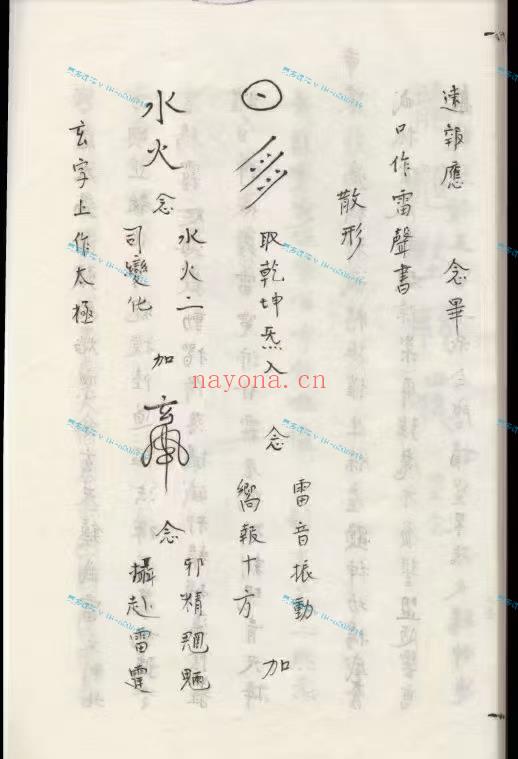 速報應 念畢
成口作雷聲書
散形
取乾坤炁入 念 雷音振動
嚮報十方 加
水火 念 水火二
司變化 加 念 邪精魍魎
攝赴雷霆
玄字上作太極
nayona.cn